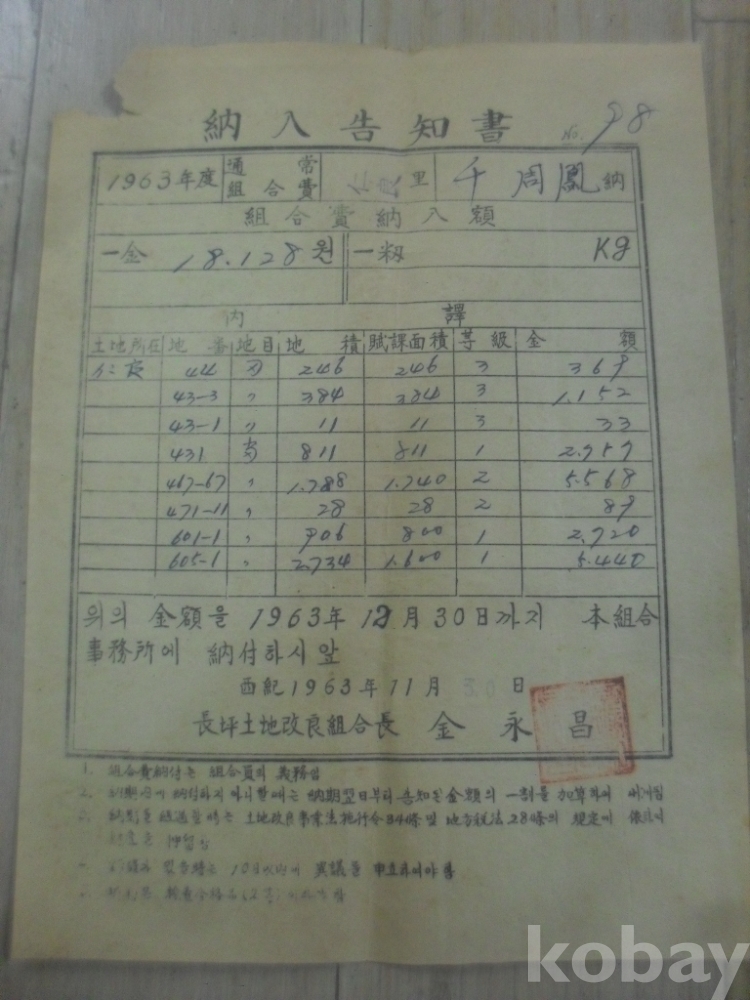 納入告知書 No. 98
1963年度 通常組合費 里 千周鳳 納
組合費納入額
一金 18.128원 一籾 Kg
內 譯
土地所在 地番 地目 地積 賦課面積 等級 金額
44 246 246 3 369
43-3 〃 384 384 3 1.152
43-1 〃 11 11 3 33
431 811 811 1 2.757
467-67 〃 1.788 1.740 2 5.568
471-11 〃 28 28 2 89
601-1 〃 906 800 1 2.720
605-1 〃 2.734 1.600 1 5.440
의의 金額을 1963年 12月 30日까지 本組合
事務所에 納付하시앞
西紀 1963年 11月 20日
長坪土地改良組合長 金永昌
1. 組合費納付는 組合員의 義務임
2. 納期內에 納付하지 아니할때는 納期翌日부터 告知된 金額의 一割을 加算하여
3. 納期를 経過할때는 土地改良事業法施行令84條 및 地方税法28條의 規定에 依하여
10日以内에 異議를 申立하여야 함
kobay